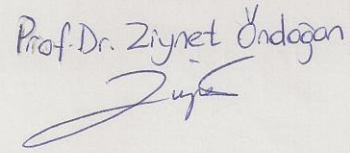 Prof. Dr. Ziynet Öndoğan